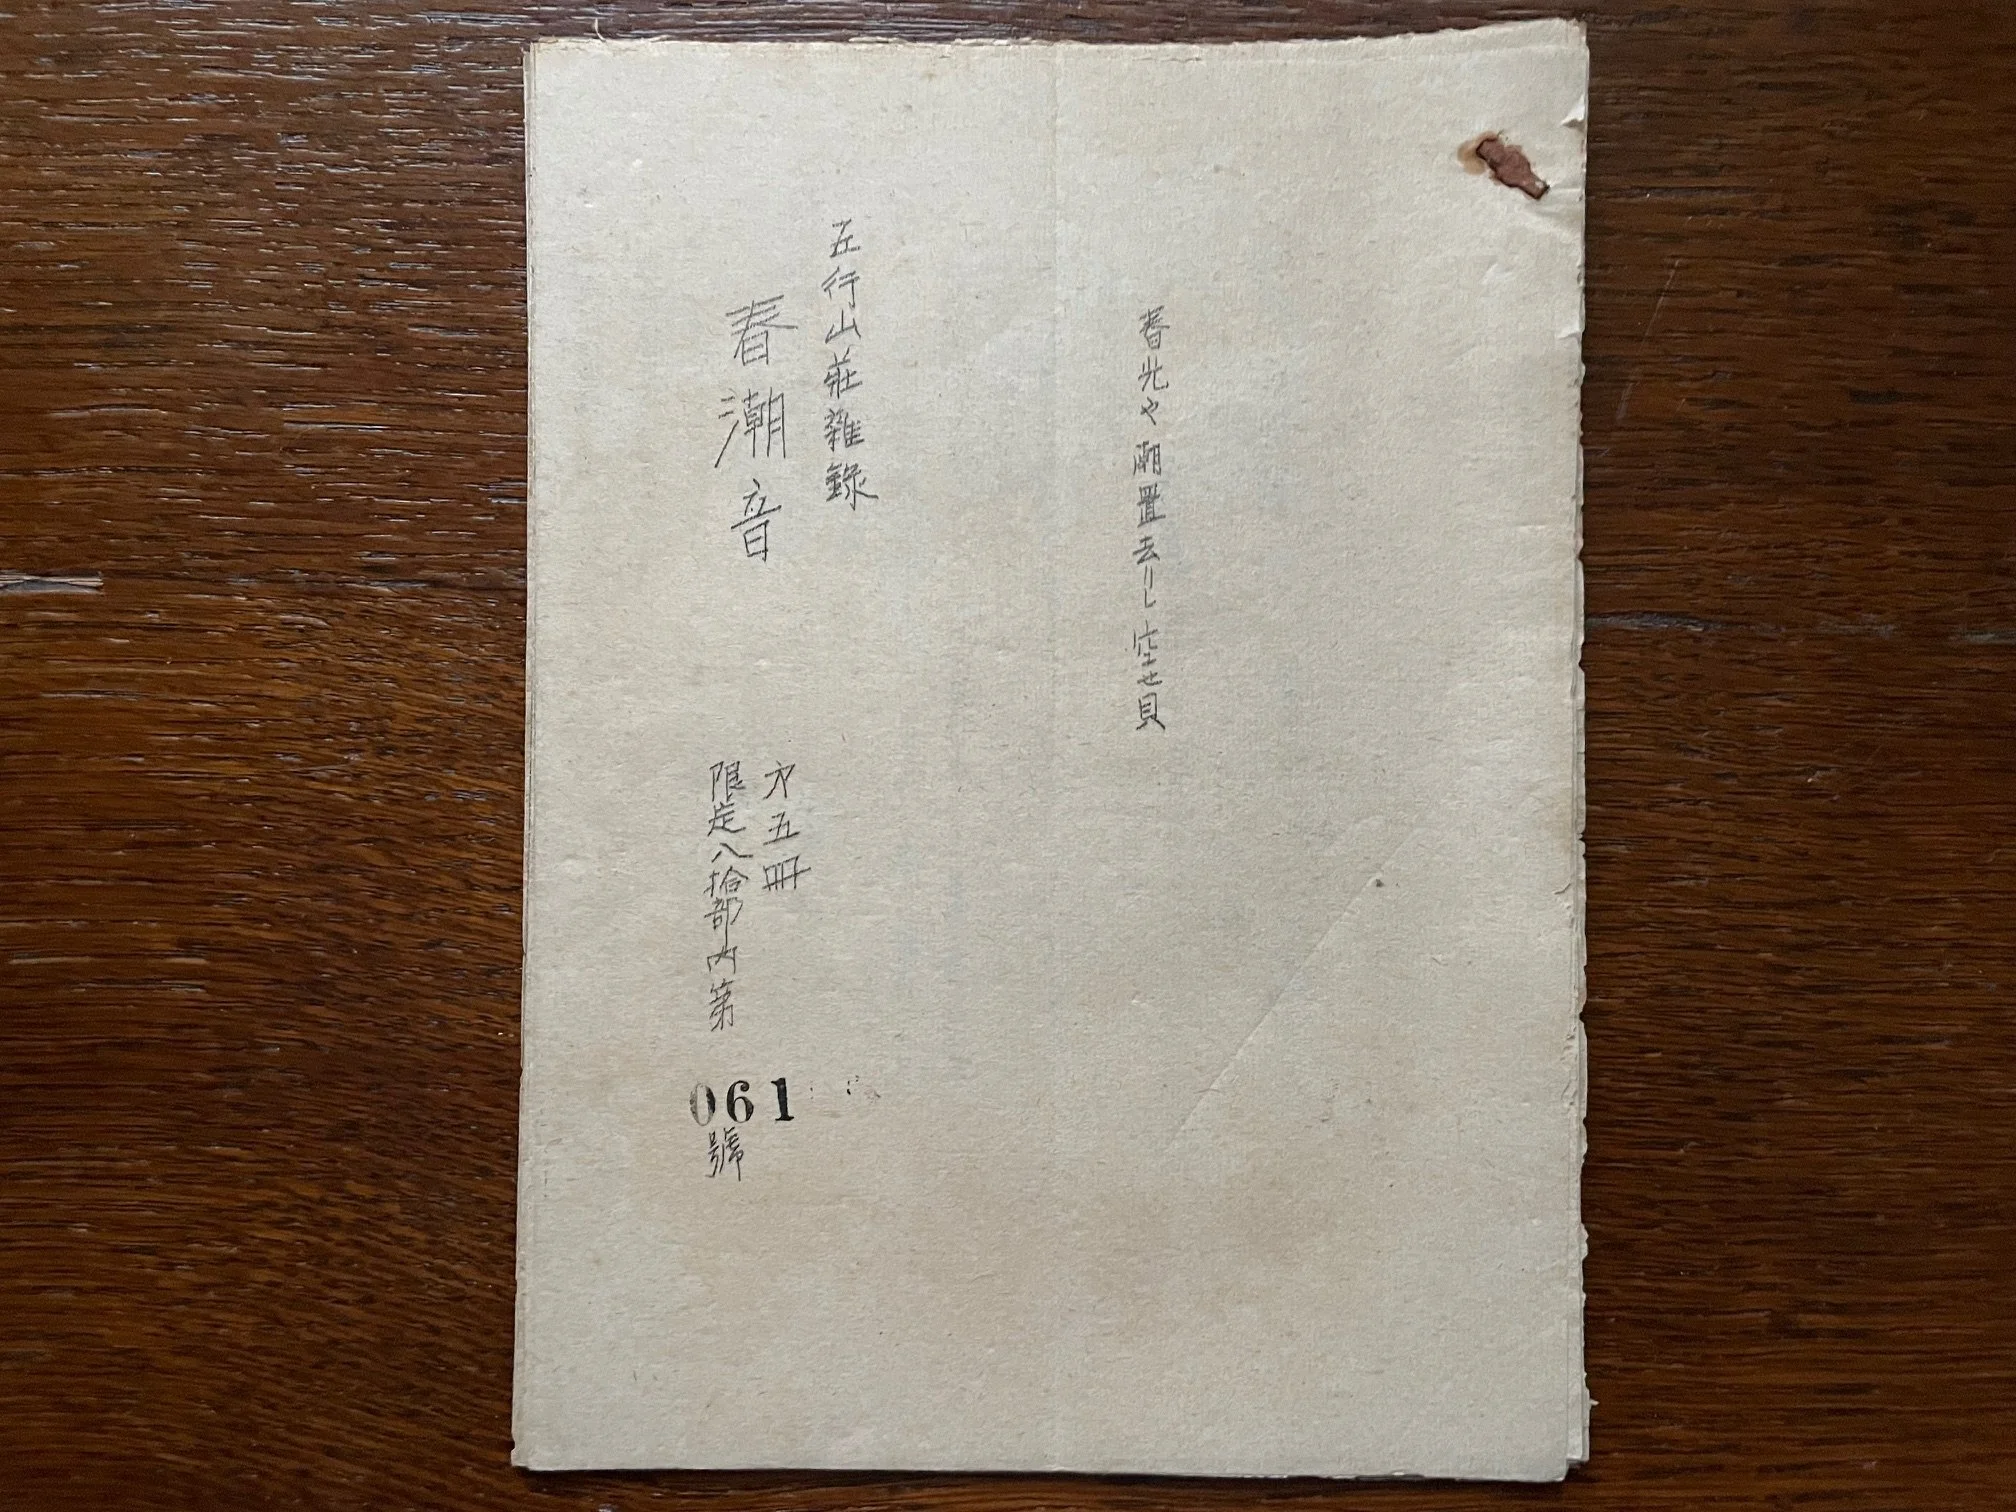 春光や潮置去りし空せ貝
五行山荘雜錄
春潮音
才五冊
限定八拾部内第
061
號